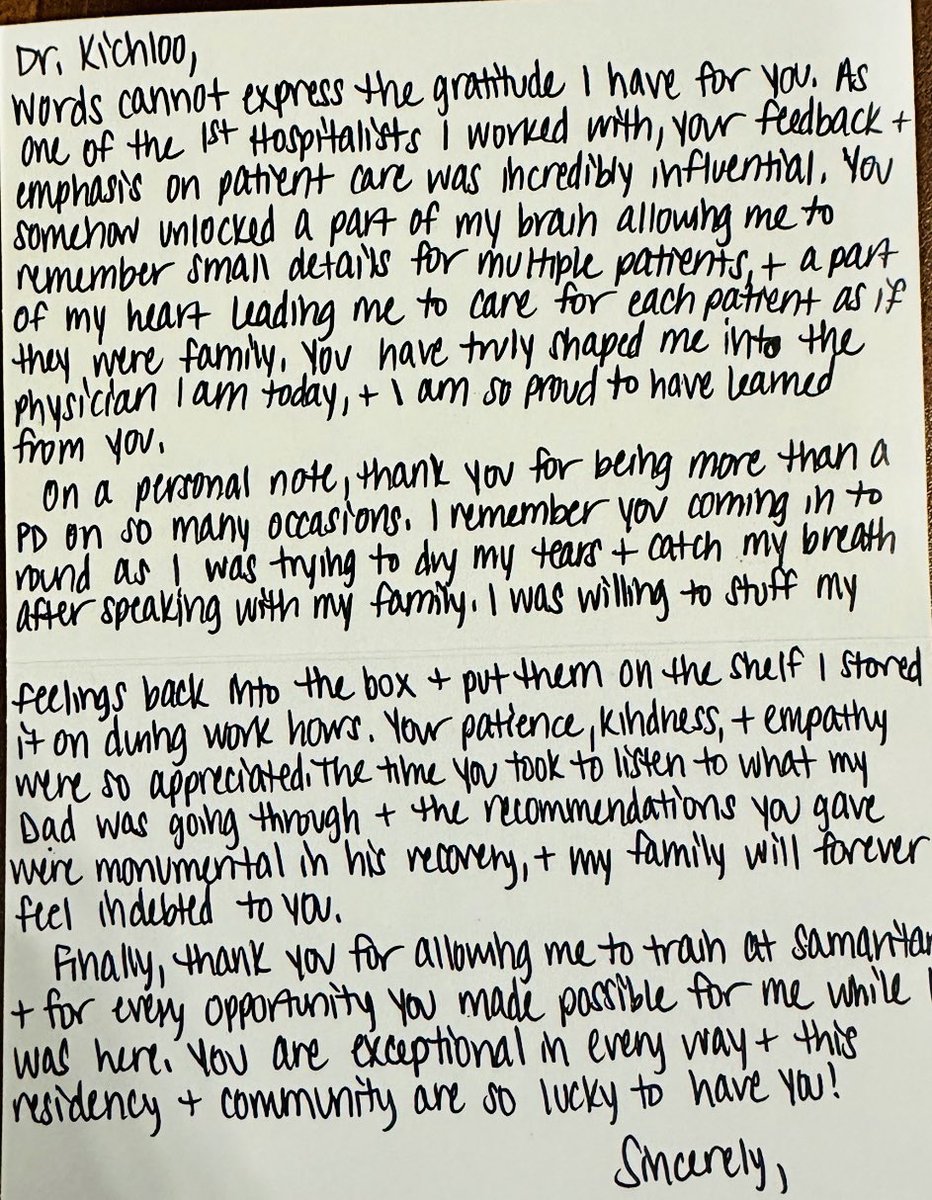 Dr. Kichloo,
Words cannot express the gratitude I have for you. As
one of the 1st Hospitalists I worked with, your feedback +
emphasis on patient care was incredibly influential. You
somehow unlocked a part of my brain allowing me to
remember small details for multiple patients, + a part
of my heart leading me to care for each patient as if
they were family. You have truly shaped me into the
physician I am today, + I am so proud to have learned
from you.
On a personal note, thank you for being more than a
PD on so many occasions. I remember you coming in to
round as I was trying to dry my tears + catch my breath
after speaking with my family. I was willing to stuff my
feelings back into the box + put them on the shelf I stored
it on during work hours. Your patience, kindness, + empathy
were so appreciated. The time you took to listen to what my
Dad was going through + the recommendations you gave
were monumental in his recovery, + my family will forever
feel indebted to you.
Finally, thank you for allowing me to train at Samaritan
+ for every opportunity you made possible for me while I
was here. You are exceptional in every way + this
residency + community are so lucky to have you!
Sincerely,